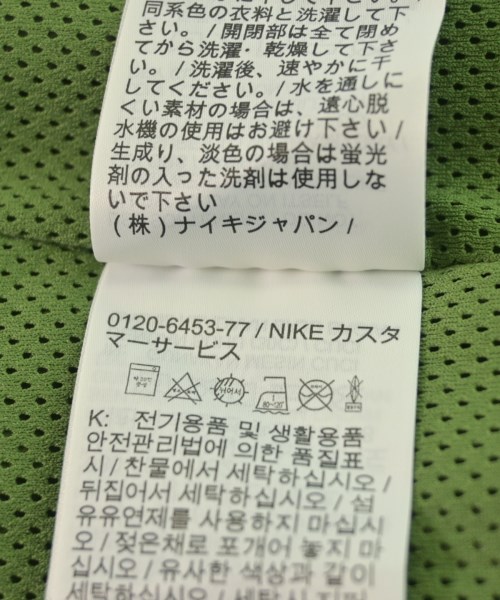 同系色の衣料と洗濯して下
さい。/開閉部は全て閉め
てから洗濯・乾燥して下さ
い。/洗濯後、速やかに干
してください。/水を通しに
くい素材の場合は、遠心脱
水機の使用はお避け下さい/
生成り、淡色の場合は蛍光
剤の入った洗剤は使用しな
いで下さい
(株)ナイキジャパン/
0120-6453-77/NIKE カスタ
マーサービス
K: 전기용품 및 생활용품
안전관리법에 의한 품질표
시/찬물에서 세탁하십시오/
뒤집어서 세탁하십시오/섬
유유연제를 사용하지 마십시
오/젖은채로 포개어 놓지 마
십시오/유사한 색상과 같이
세탁하십시오/세탁시 지퍼